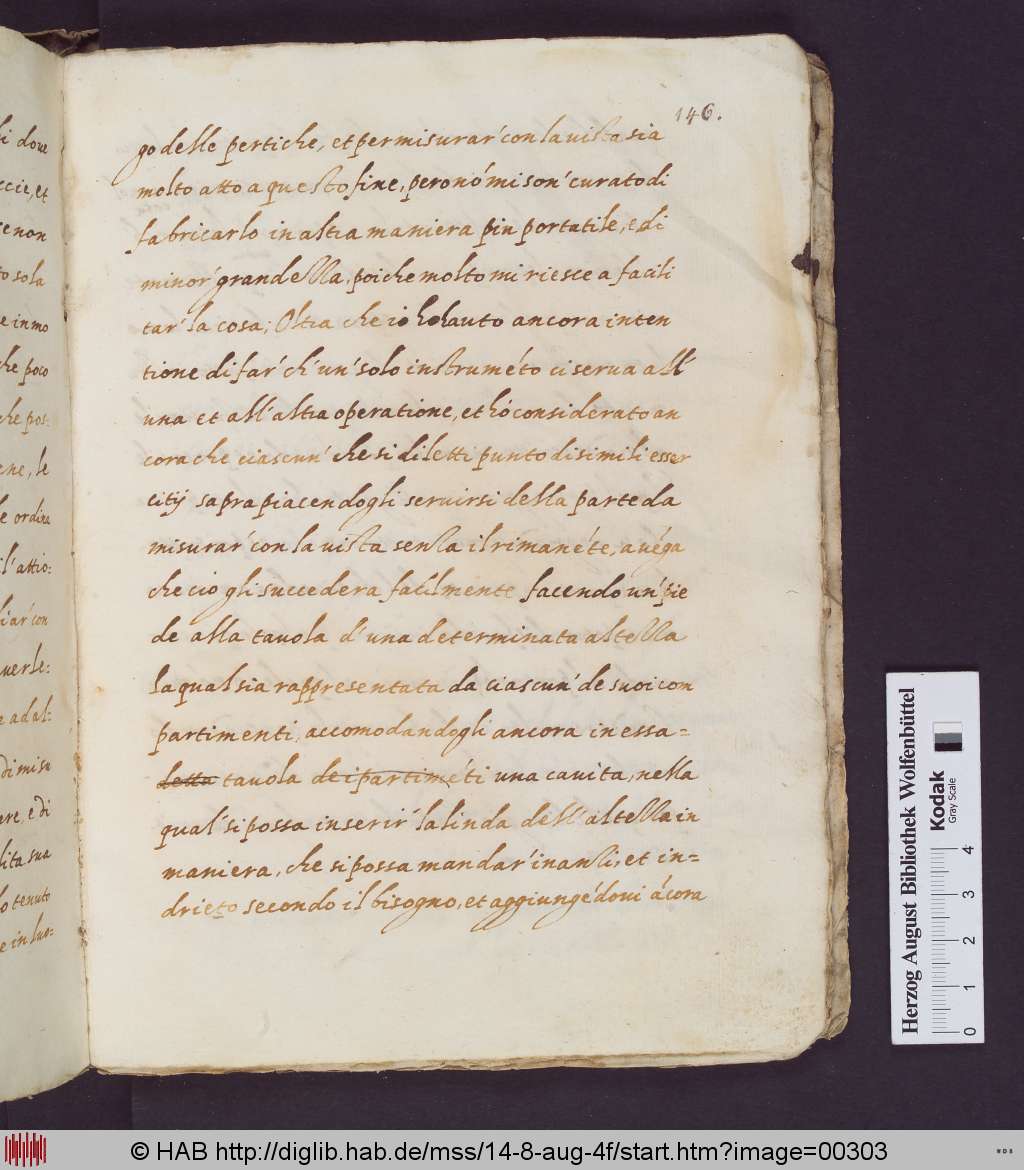 li doue
ccie, et
se non
to sola
e in mo
che poco
che pos:
ene, le
e ordina
il' attio:
liar' con
uerle:
e ad al:
di misu
are, e di
lita sua
lo tenuto
e in luo:
146.
go delle pertiche, et per misurar' con la uista sia
molto atto a questo fine, pero nó mi son' curato di
fabricarlo in altra maniera piu portatile, e di
minor' grandezza, poiche molto mi riesce a facili
tar' la cosa; Oltra che io ho hauto ancora inten
tione di far' ch' un' solo instruméto ci serua all'
una et all' altra operatione, et hó considerato an
cora che ciascun' che si diletti punto di simili esser
citij sapra piacendogli seruirsi della parte da
misurar' con la uista senza il rimanéte, auéga
che cio gli succedera facilmente facendo un' pie
de alla tauola d' una determinata altezza
la qual sia rappresentata da ciascun' de suoi com
partimenti, accomodandogli ancora in essa=
detta tauola dei partiméti una cauita, nella
qual' si possa inserir' la linda dell' altezza in
maniera, che si possa mandar' inanzi, et in=
drieto secondo il bisogno, et aggiungédoui ácora
Herzog August Bibliothek Wolfenbüttel
Kodak
Gray Scale
0 1 2 3 4
© HAB http://diglib.hab.de/mss/14-8-aug-4f/start.htm?image=00303